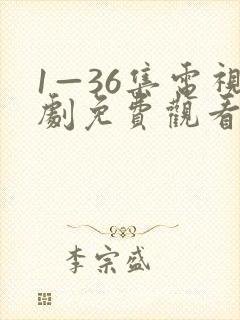 1—36集電視
劇免費觀看
李宗盛